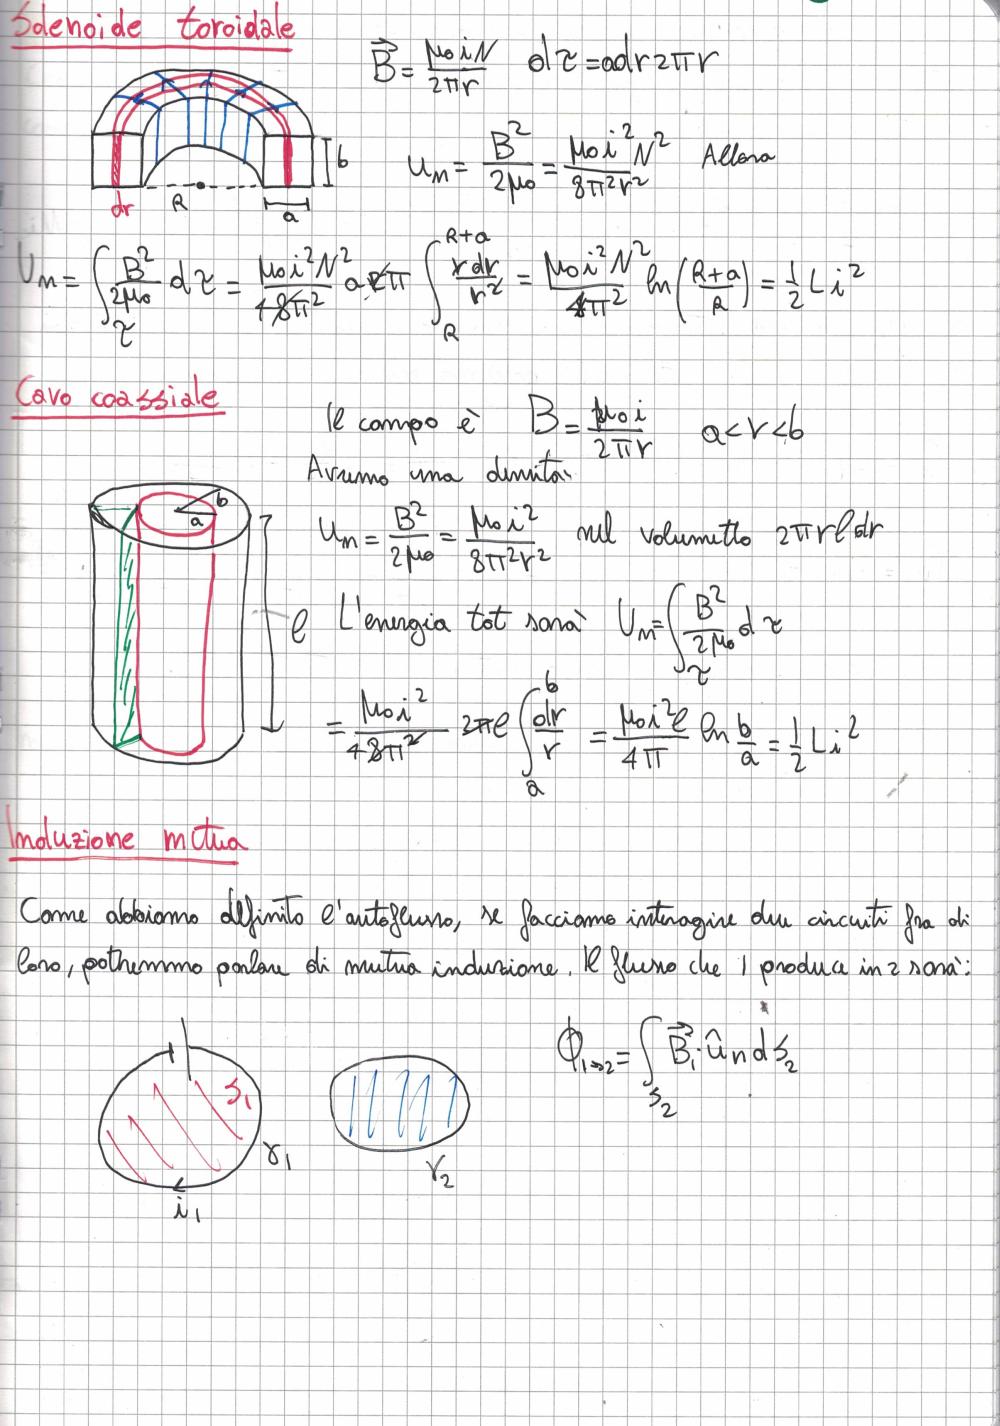 Solenoide toroidale
B⃗ = μ₀iN / 2πr   dτ = adr2πr
u_m = B² / 2μ₀ = μ₀i²N² / 8π²r²   Allora
b
dr   R   a
U_m = ∫_τ B² / 2μ₀ dτ = μ₀i²N² / 48π² a2π ∫_R^{R+a} rdr / r² = μ₀i²N² / 4π² ln(R+a / R) = 1/2 Li²
Cavo coassiale
Il campo è   B = μ₀i / 2πr   a<r<b
Avremo una densità
b
a
u_m = B² / 2μ₀ = μ₀i² / 8π²r²   nel volumetto 2πrℓdr
ℓ   L'energia tot sarà   U_m = ∫_τ B² / 2μ₀ dτ
= μ₀i² / 48π² 2πℓ ∫_a^b dr / r = μ₀i²ℓ / 4π ln b/a = 1/2 Li²
Induzione mutua
Come abbiamo definito l'autoflusso, se facciamo interagire due circuiti fra di
loro, potremmo parlare di mutua induzione. Il flusso che 1 produce in 2 sarà:
Φ₁→₂ = ∫_{S₂} B⃗₁·û_n dS₂
S₁
γ₁   γ₂
i₁